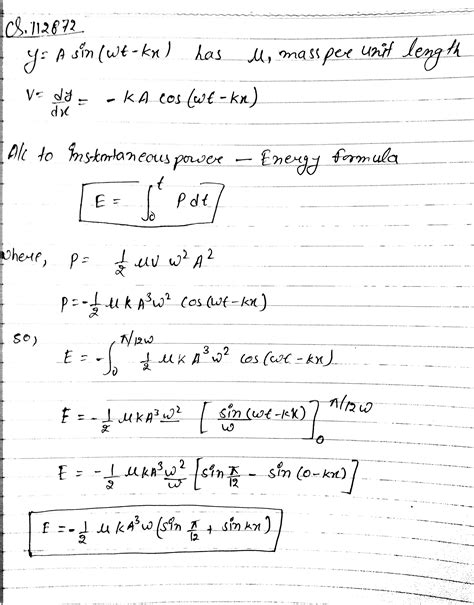 Ch. 112872
y = A sin(ωt - kx) has μ, mass per unit length
V = dy/dx = - kA cos(ωt - kx)
A/c to Instantaneous power — Energy formula
E = ∫₀ᵗ P dt
where, P = 1/2 μv ω² A²
P = -1/2 μ k A³ω² cos(ωt - kx)
so,
E = -∫₀^(π/12ω) 1/2 μk A³ω² cos(ωt - kx)
E = -1/2 μkA³ω² [sin(ωt - kx)/ω]₀^(π/12ω)
E = -1/2 μkA³ω²/ω [sin π/12 - sin(0 - kx)]
E = -1/2 μ kA³ω (sin π/12 + sin kx)